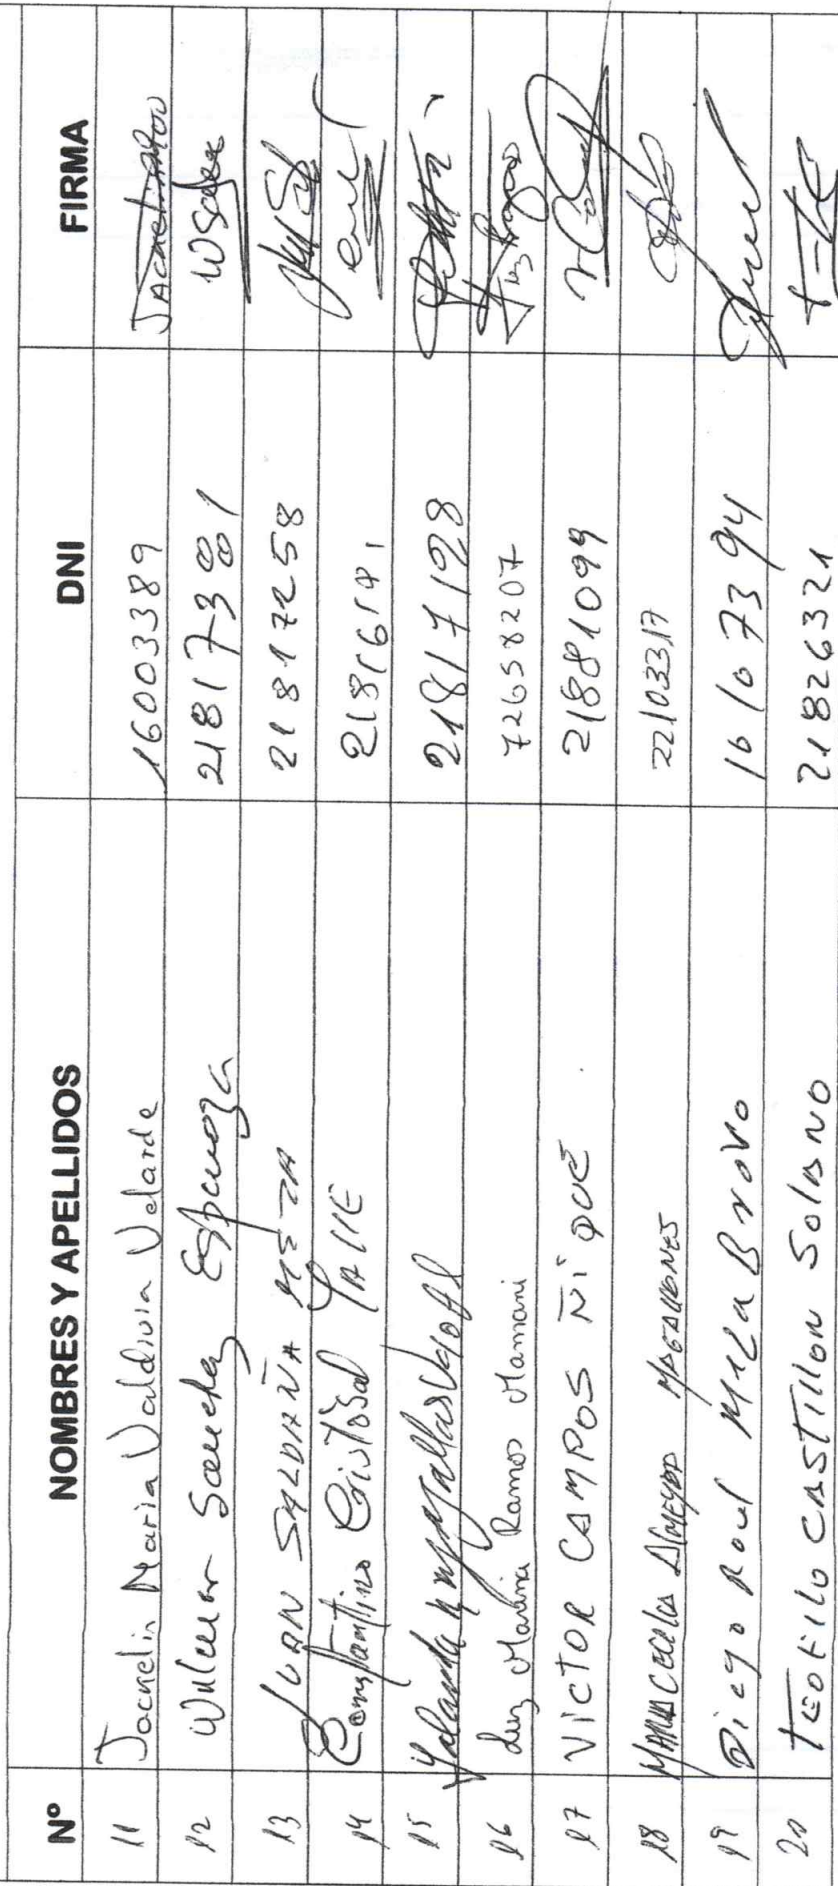 Nº NOMBRES Y APELLIDOS DNI FIRMA
11 Jacnelin Maria Valdivia Velarde 16003389
12 Wilmer Sanchez Espinoza 21817381 WSchez
13 JUAN SALDAÑA MEZA 21817258
14 Constantino Cristobal YALLE 21816141
15 Yolanda 21817128
16 Luz Marina Ramos Mamani 72658207
17 VICTOR CAMPOS ÑIQUÉ 21881099
18 MARIA CECILIA ALMEYDA MAGALLANES 22103317
19 Diego Raul Meza Bravo 16107394
20 TEOFILO CASTILLON SOLANO 21826321